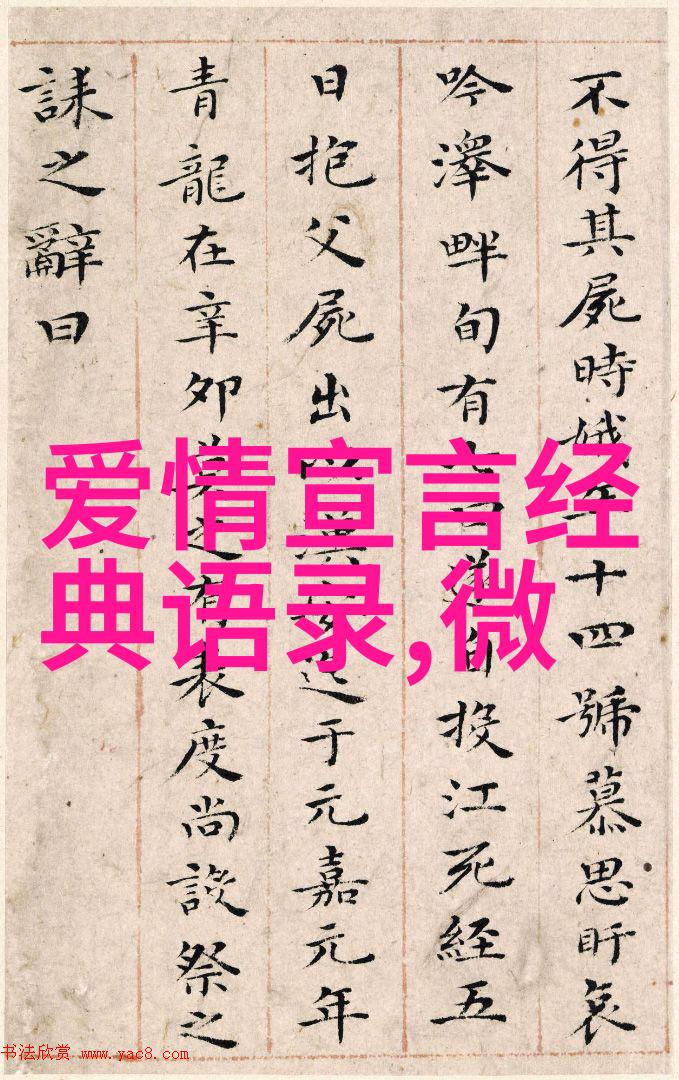 不得其屍時娥十四號慕思盱哀
吟澤畔旬有七日遂自投江死經五
日抱父屍出以漢迄于元嘉元年
青龍在辛卯莫之有表度尚設祭之
誄之辭曰
爱情宣言经
典语录,微
书法欣赏 www.yac8.com